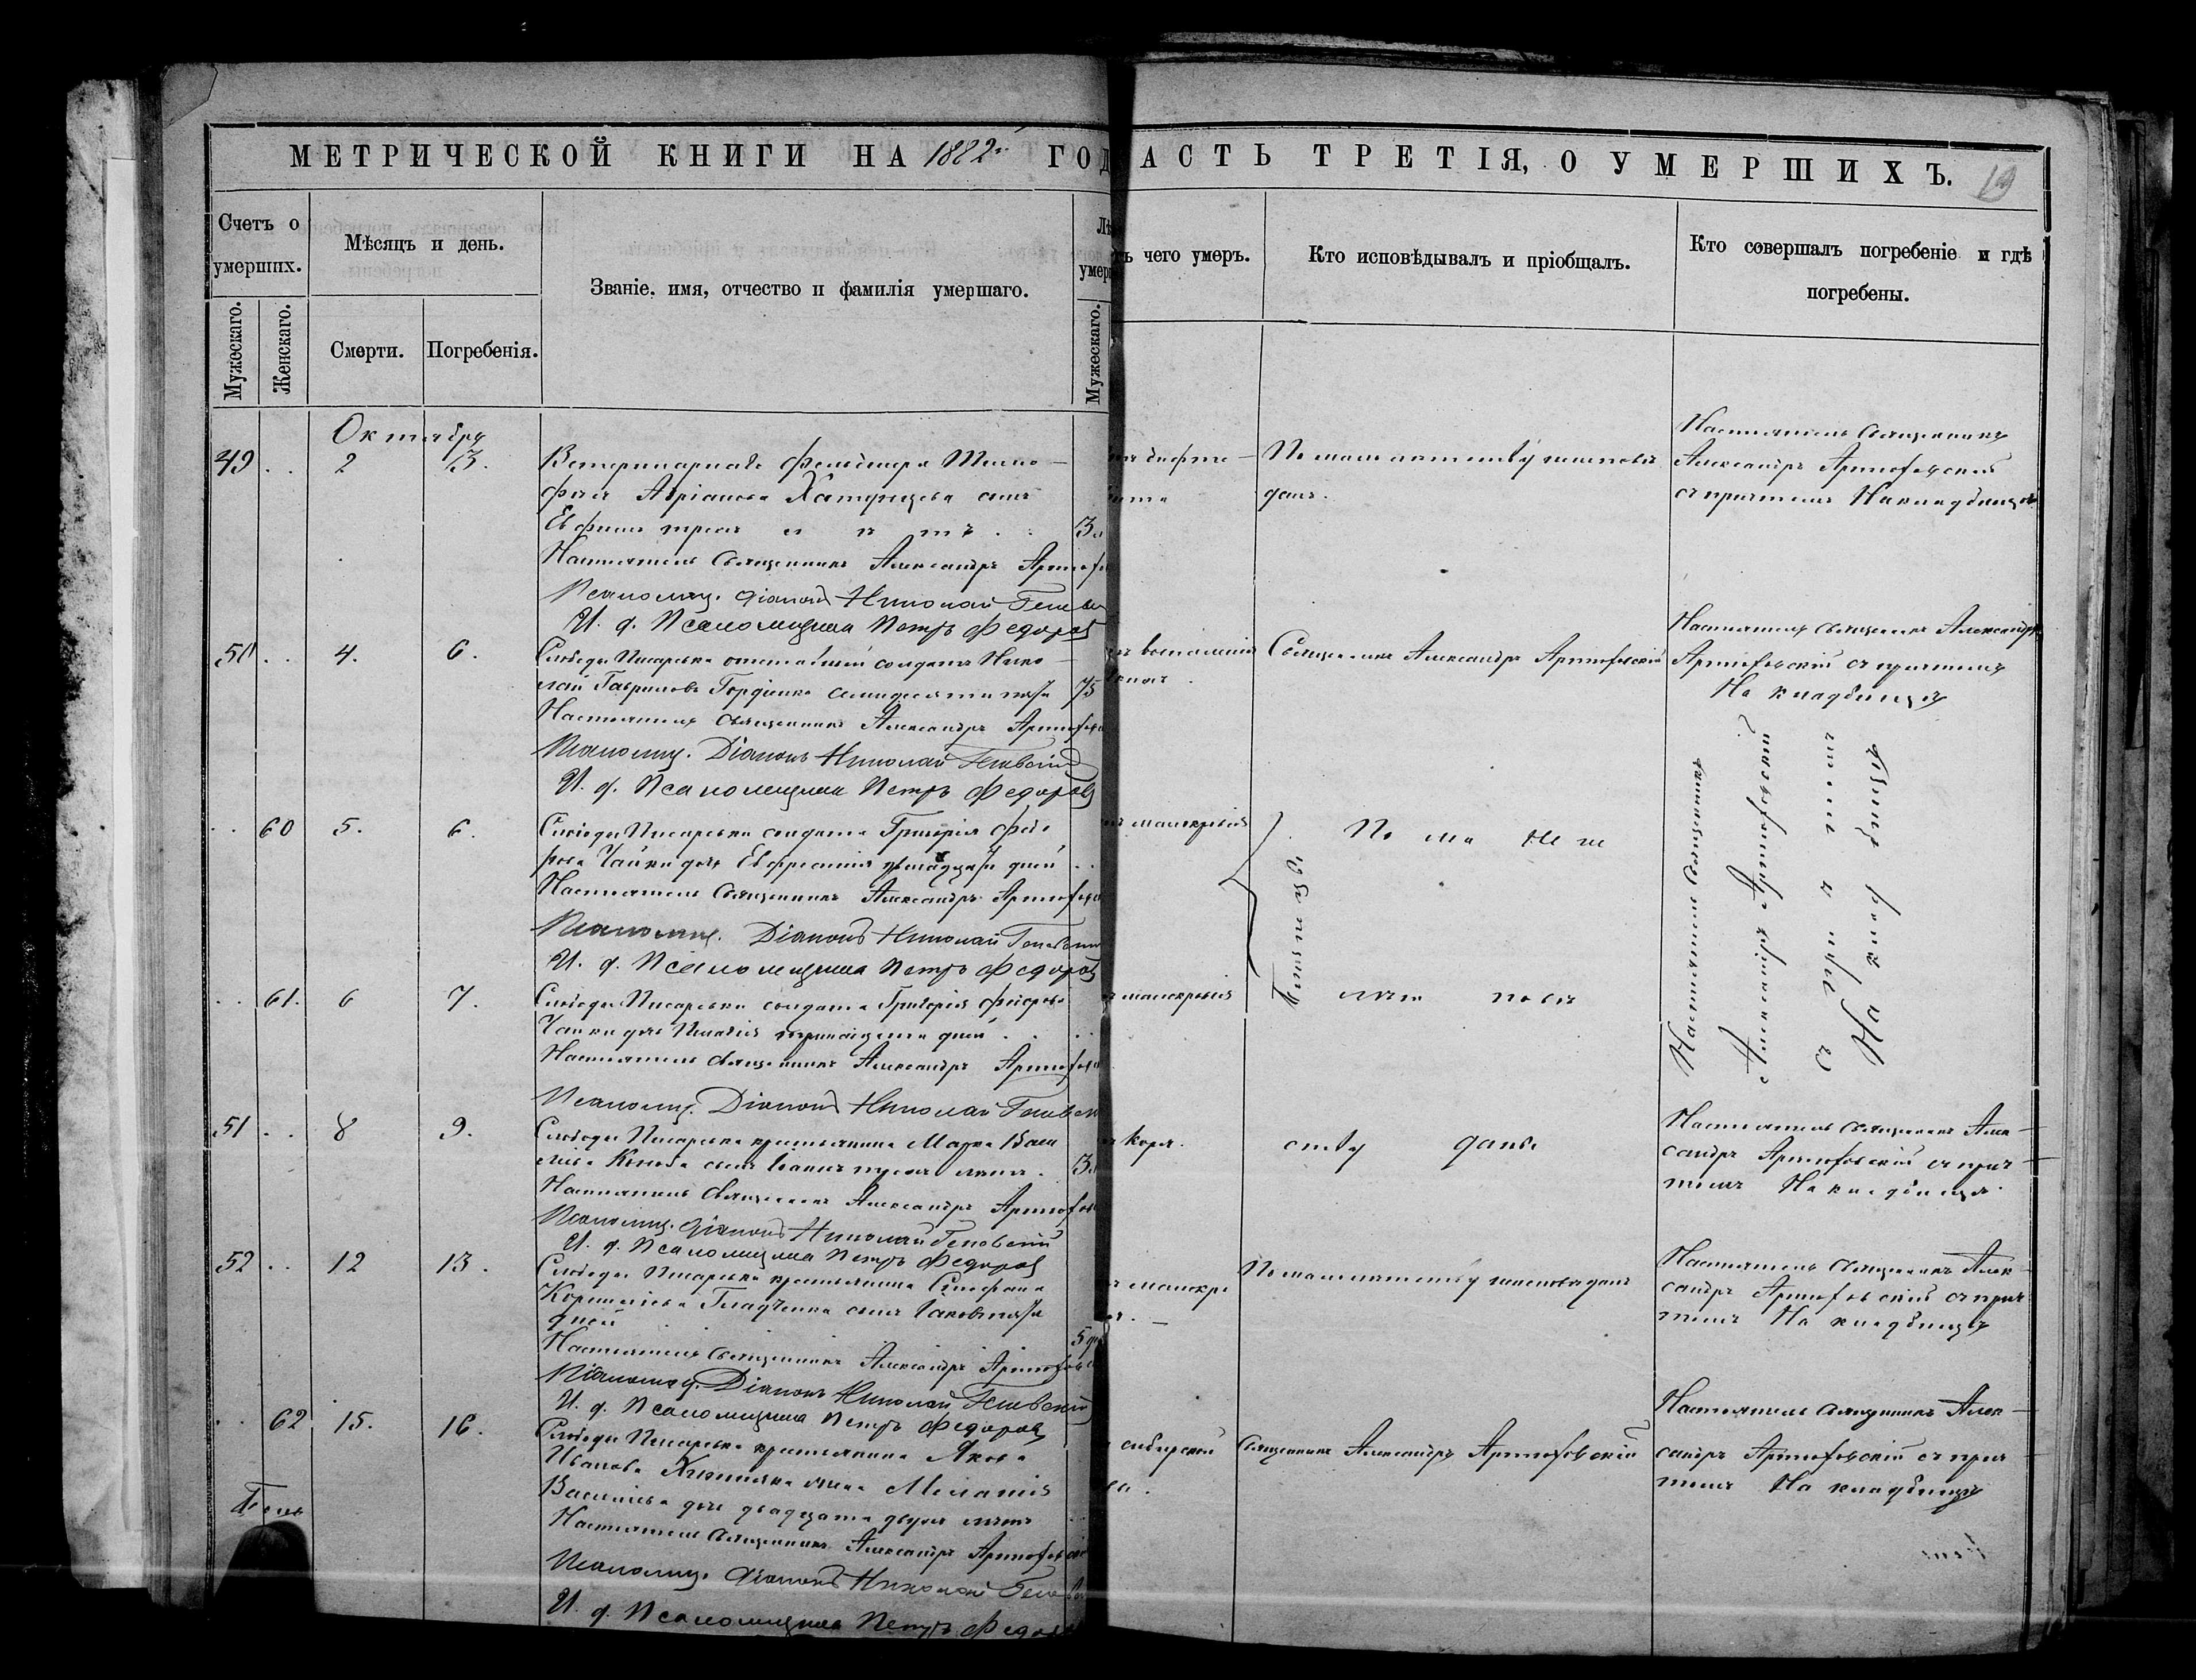 МЕТРИЧЕСКОЙ КНИГИ НА 1882й ГОД
АСТЬ ТРЕТІЯ, О УМЕРШИХЪ.
19
Счетъ о умершихъ.
Мѣсяцъ и день.
Званіе, имя, отчество и фамилія умершаго.
Лѣ
умер
Мужескаго.
Женскаго.
Смерти.
Погребенія.
Мужескаго.
ъ чего умеръ.
Кто исповѣдывалъ и пріобщалъ.
Кто совершалъ погребеніе и гдѣ
погребены.
Октября
49 . . 2 3.
Ветеринарнаго фельдшера Тимо-
фея Адріанова сынъ
Евфимъ трехъ лѣтъ . . 3.
Настоятель Священникъ Александръ Артюхов
Псаломщ. Діаконъ Николай
И. д. Псаломщика Петръ Федоровъ
дифте-
рита
По малолѣтству не исповѣ
данъ.
Настоятель Священникъ
Александръ Артюховскій
съ причтомъ На кладбищѣ
50 . . 4. 6.
Слободы Писаревки отставной солдатъ Нико-
лай Гавриловъ Гордіенко семидесяти пяти 75
Настоятель Священникъ Александръ Артюхов
Псаломщ. Діаконъ Николай
И. д. Псаломщика Петръ Федоровъ
воспаленія
Священникъ Александръ Артюховскій
Настоятель Священникъ Александръ
Артюховскій съ причтомъ
На кладбищѣ
. . 60 5. 6.
Слободы Писаревки солдата Григорія Федо
рова Чайки дочь Евфросинія дней . .
Настоятель Священникъ Александръ Артюхов
Псаломщ. Діаконъ Николай
И. д. Псаломщика Петръ Федоровъ
малокровія
По ма ло
Настоятель Священникъ
Александръ Артюховскій
съ причтомъ
На кладбищѣ
. . 61. 6 7.
Слободы Писаревки солдата Григорія Федорова
Чайки дочь Пелагія тринадцати дней . .
Настоятель Священникъ Александръ Артюхов
Псаломщ. Діаконъ Николай
малокровія
лѣт повѣ
51 . . 8 9.
Слободы Писаревки крестьянина Марка Васи
льева сынъ Іоаннъ трехъ лѣтъ . 3.
Настоятель Священникъ Александръ Артюхов
Псаломщ. Діаконъ Николай
И. д. Псаломщика Петръ Федоровъ
кори.
ству даны
Настоятель Священникъ Алек-
сандръ Артюховскій съ прич-
томъ На кладбищѣ.
52 . . 12 13.
Слободы Писаревки крестьянина Стефана
Корнильева Гладченка сынъ Іаковъ пяти
дней 5 дн
Настоятель Священникъ Александръ Артюхов
Псаломщ. Діаконъ Николай
И. д. Псаломщика Петръ Федоровъ
малокро
По малолѣтству не исповѣданъ
Настоятель Священникъ Алек-
сандръ Артюховскій съ прич
томъ На кладбищѣ
. . 62 15. 16.
Слободы Писаревки крестьянина Якова
Иванова жена Меланія
Васильева дочь двадцати двухъ лѣтъ
Настоятель Священникъ Александръ Артюховскій
Псаломщ. Діаконъ Николай
И. д. Псаломщика Петръ Федоров
сибирской
Священникъ Александръ Артюховскій
Настоятель Священникъ Алек-
сандръ Артюховскій съ прич
томъ На кладбищѣ